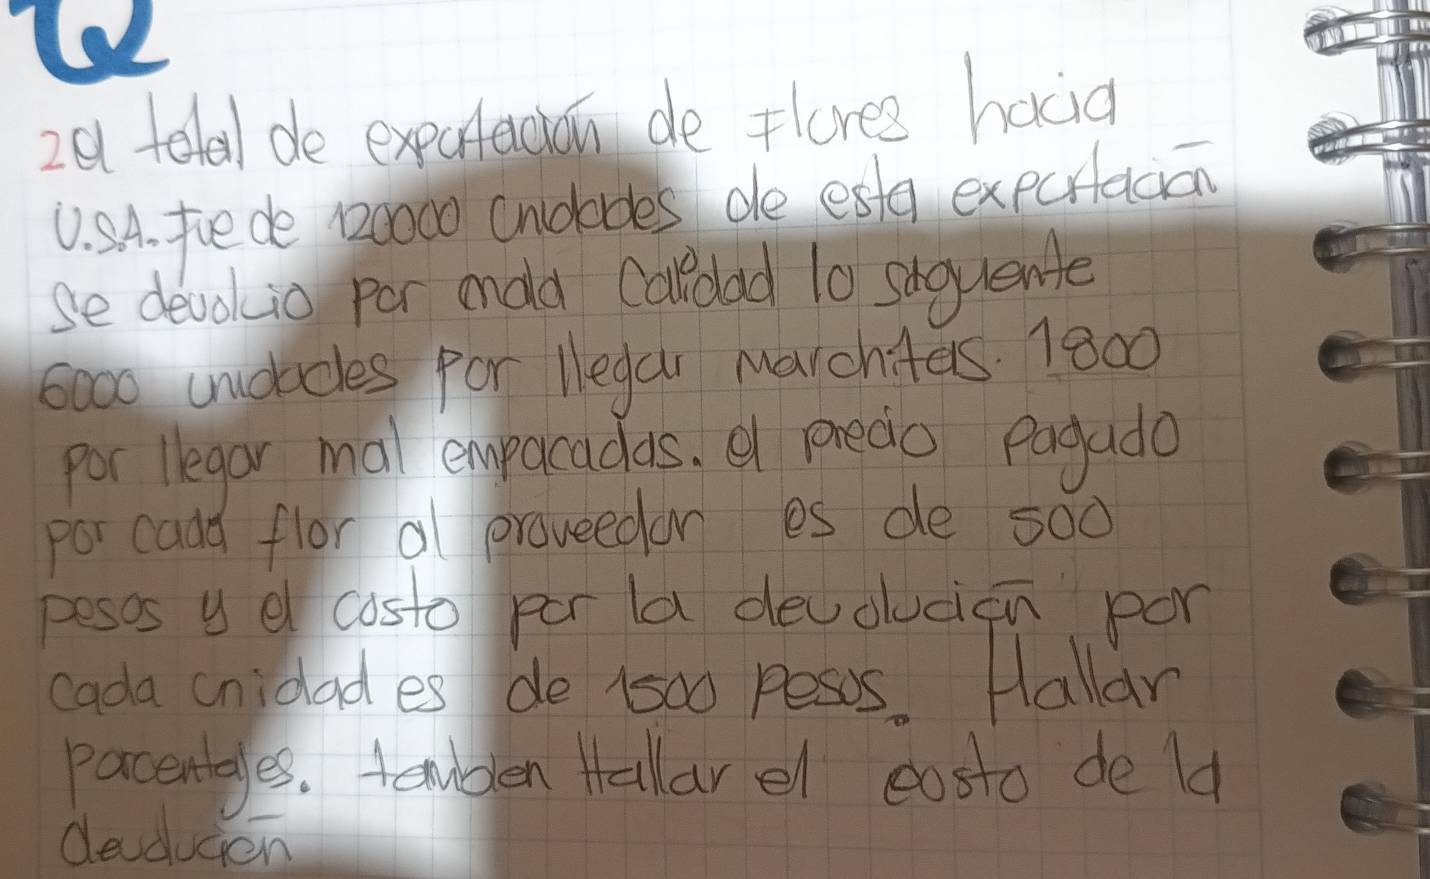 2 el total de exportación de Flores hacia
U.S.A. fue de 120000 unidades de esta exportación
se devolvio por mala Calidad lo siguiente
6000 unidades por llegar Marchitas. 1800
por llegar mal empacadas. el precio pagado
por cada flor al proveedor es de 500
pesos y el costo por la devolución por
cada unidad es de 1500 pesos. Hallar
Porcentajes. tambien Hallar el costo de la
devolución